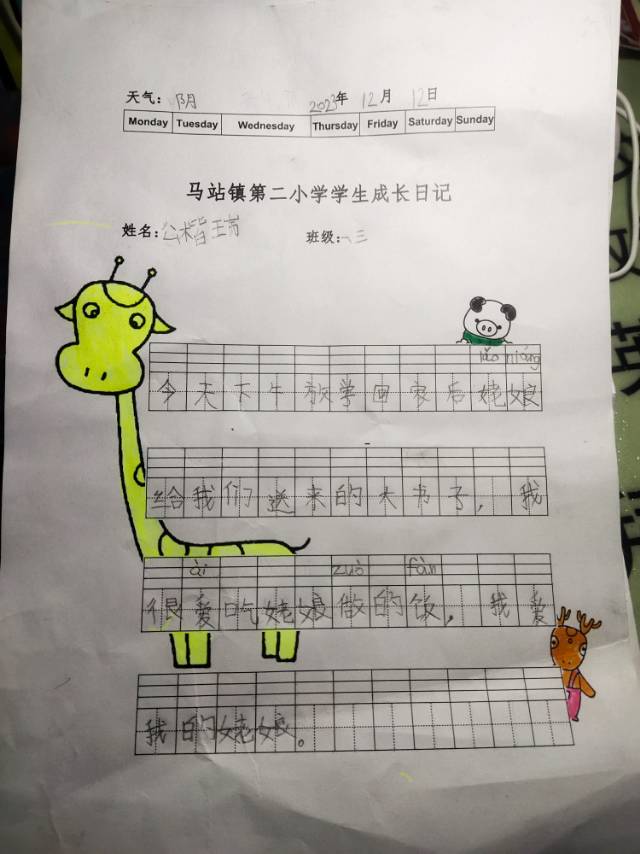 天气：阴 2023年 12月 12日
Monday Tuesday Wednesday Thursday Friday Saturday Sunday
马站镇第二小学学生成长日记
姓名： 班级：一三
lǎo niáng
今天下午放学回家后姥娘
给我们送来的大书子，我
ài zuò fàn
很爱吃姥娘做的饭，我爱
我的姥娘。